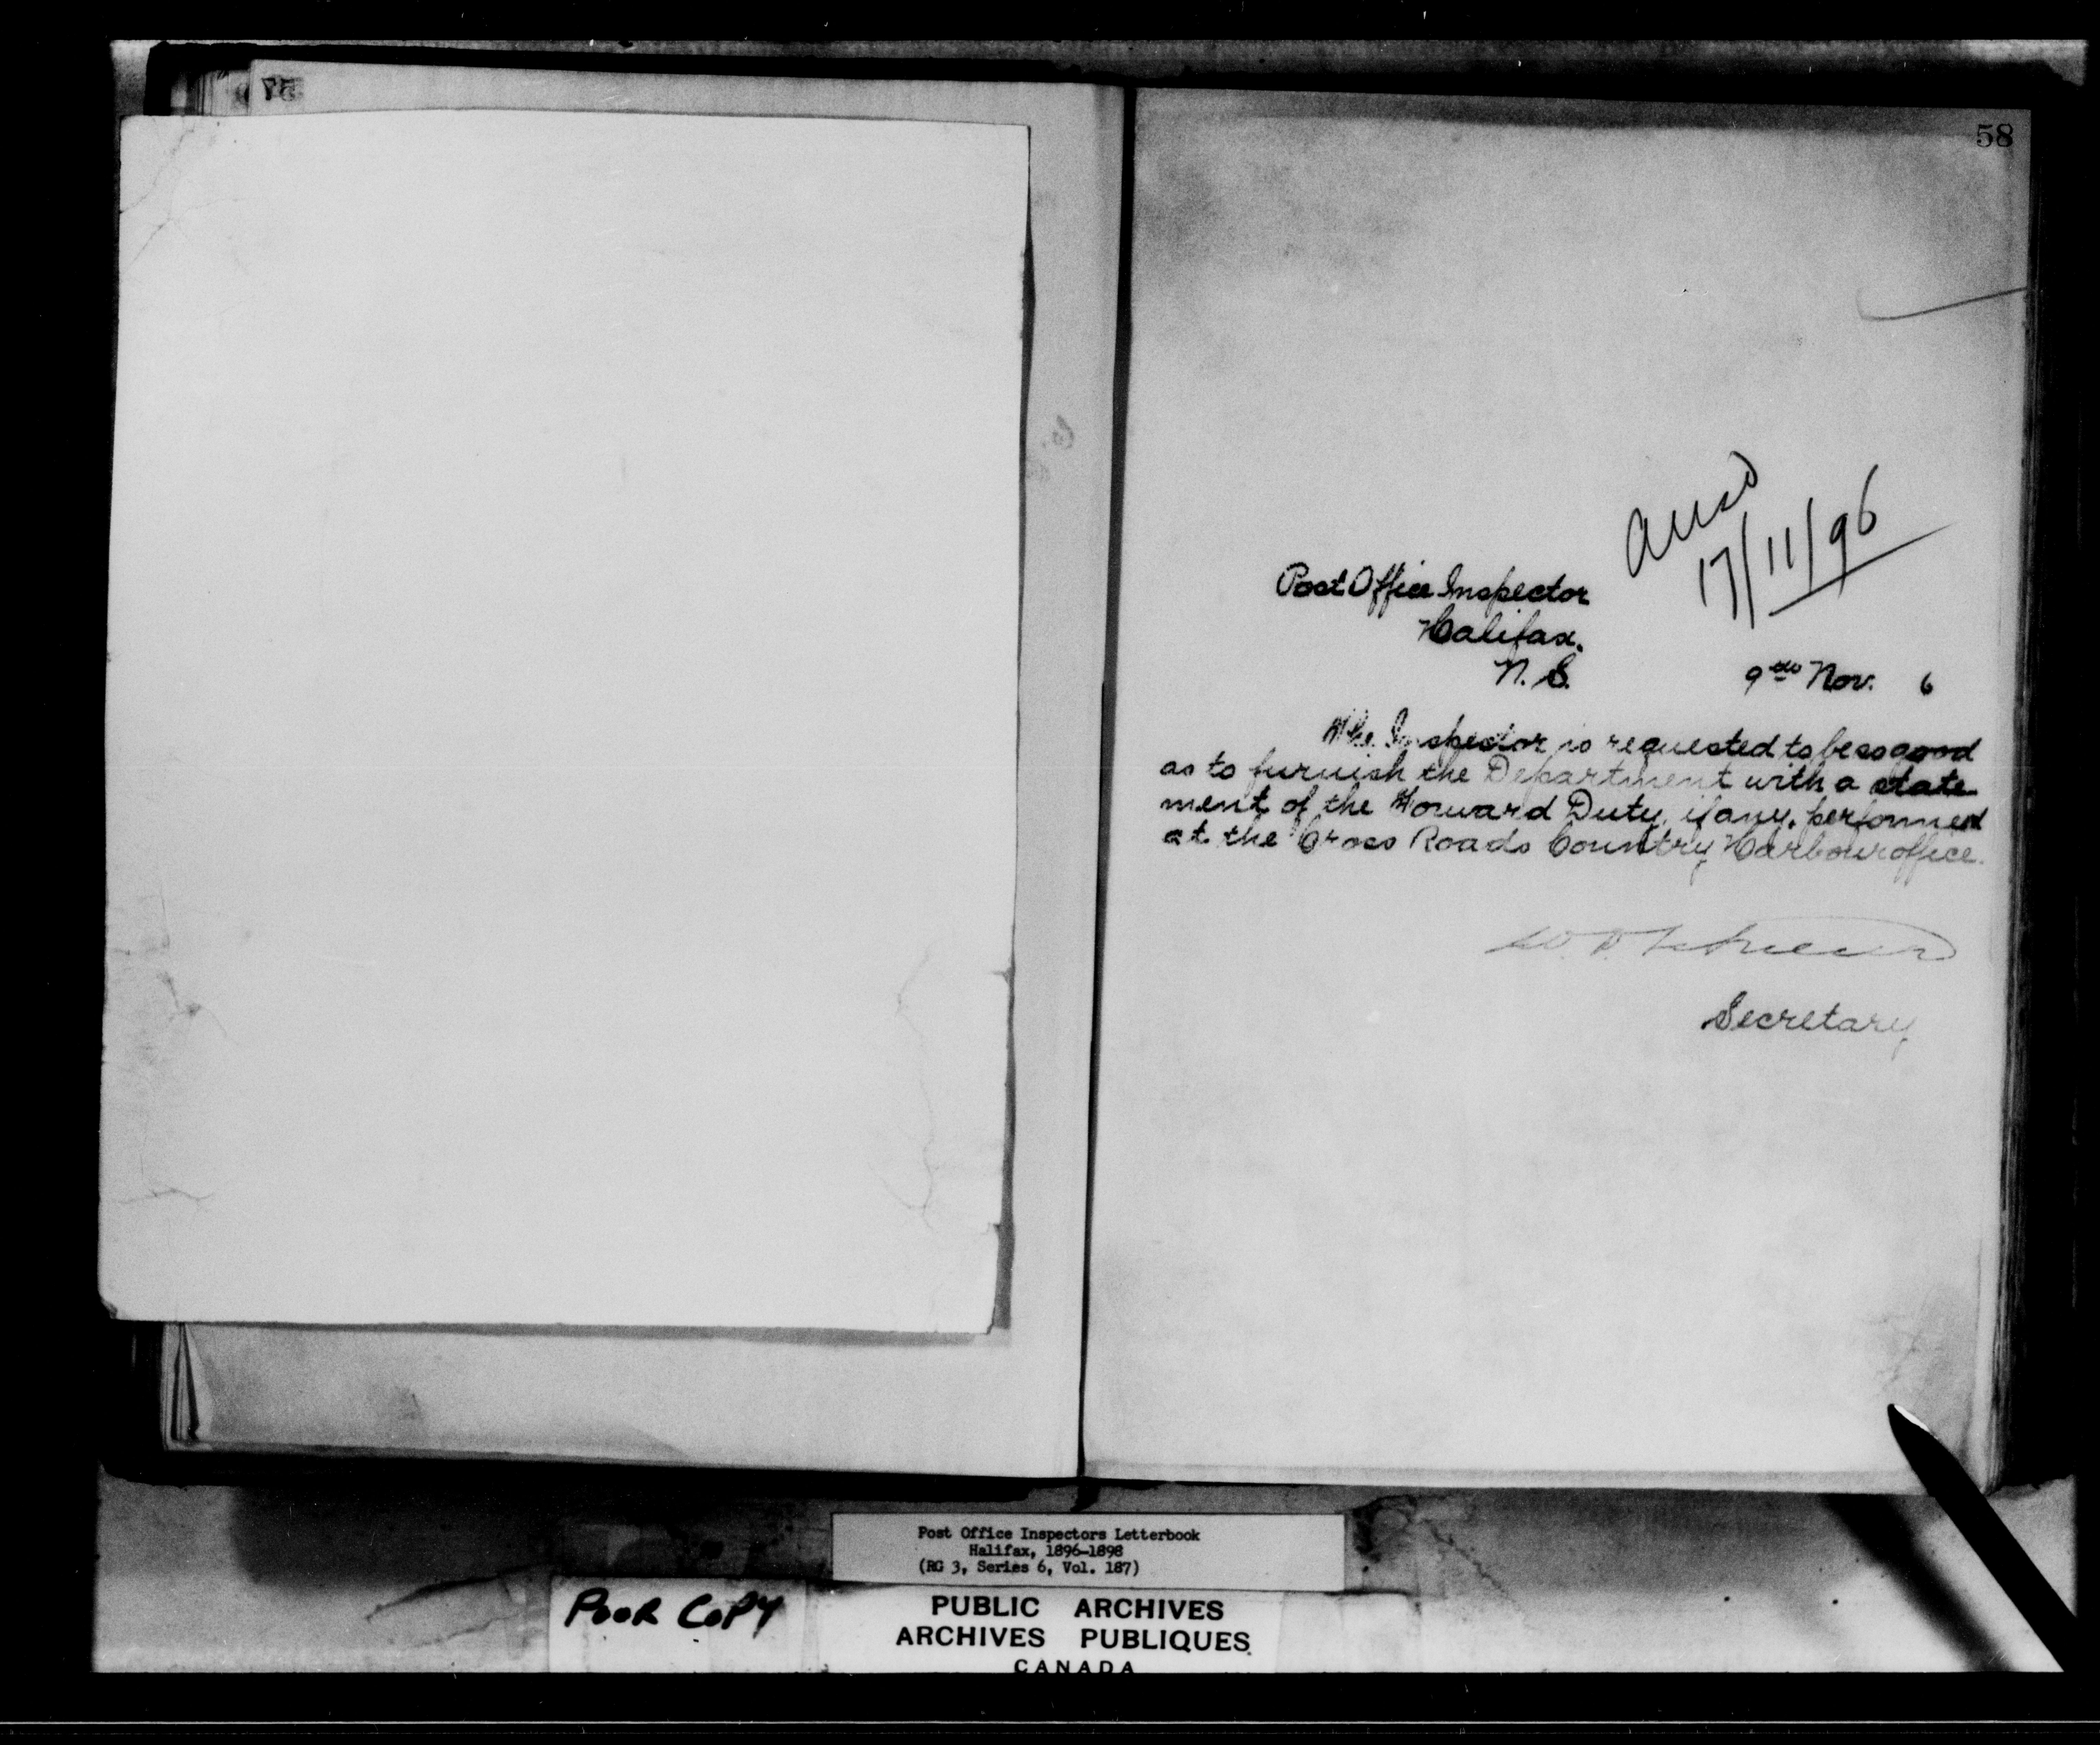 57
58
ansd
17/11/96
Post Office Inspector
Halifax.
N. S.
9th Nov. 6
The Inspector is requested to be so good
as to furnish the Department with a state
ment of the Forward Duty, if any, performed
at the Cross Roads Country Harbour office.
Secretary
Post Office Inspectors Letterbook
Halifax, 1896-1898
(RG 3, Series 6, Vol. 187)
POOR COPY
PUBLIC ARCHIVES
ARCHIVES PUBLIQUES
CANADA